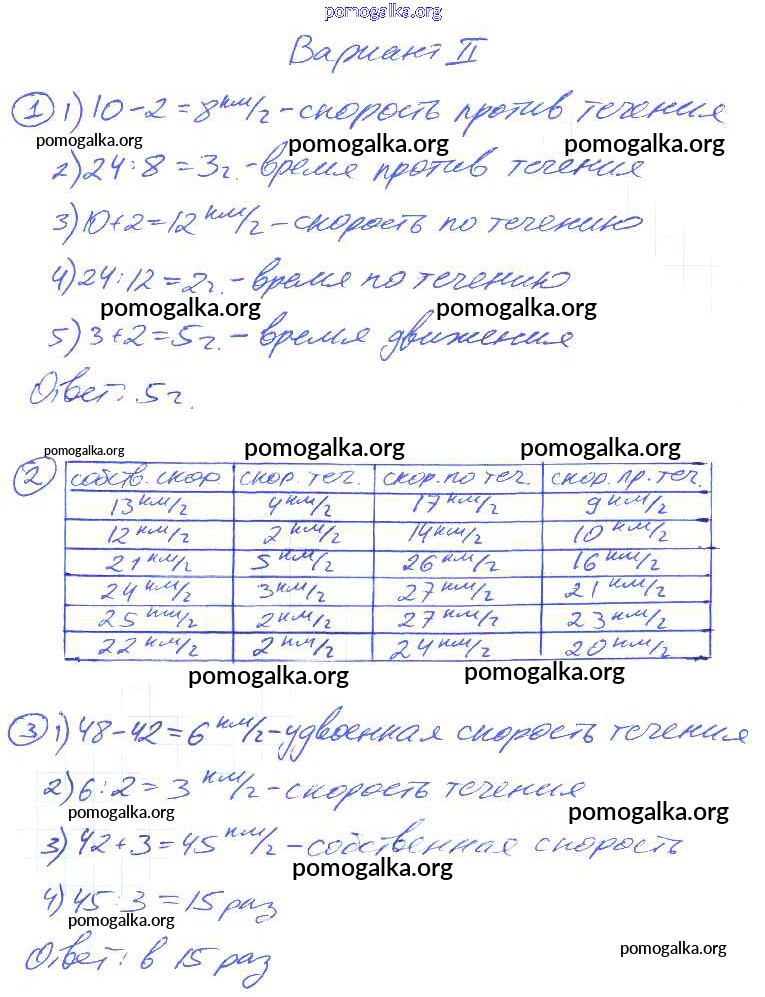 pomogalka.org
Вариант II
① 1) 10 - 2 = 8 км/ч - скорость против течения
pomogalka.org pomogalka.org pomogalka.org
2) 24 : 8 = 3 ч. - время против течения
3) 10 + 2 = 12 км/ч - скорость по течению
4) 24 : 12 = 2 ч. - время по течению
pomogalka.org pomogalka.org
5) 3 + 2 = 5 ч. - время движения
Ответ: 5 ч.
pomogalka.org pomogalka.org pomogalka.org
② собств. скор. скор. теч. скор. по теч. скор. пр. теч.
13 км/ч 4 км/ч 17 км/ч 9 км/ч
12 км/ч 2 км/ч 14 км/ч 10 км/ч
21 км/ч 5 км/ч 26 км/ч 16 км/ч
24 км/ч 3 км/ч 27 км/ч 21 км/ч
25 км/ч 2 км/ч 27 км/ч 23 км/ч
22 км/ч 2 км/ч 24 км/ч 20 км/ч
pomogalka.org pomogalka.org
③ 1) 48 - 42 = 6 км/ч - удвоенная скорость течения
2) 6 : 2 = 3 км/ч - скорость течения
pomogalka.org pomogalka.org
3) 42 + 3 = 45 км/ч - собственная скорость
pomogalka.org
4) 45 : 3 = 15 раз
pomogalka.org
Ответ: в 15 раз
pomogalka.org